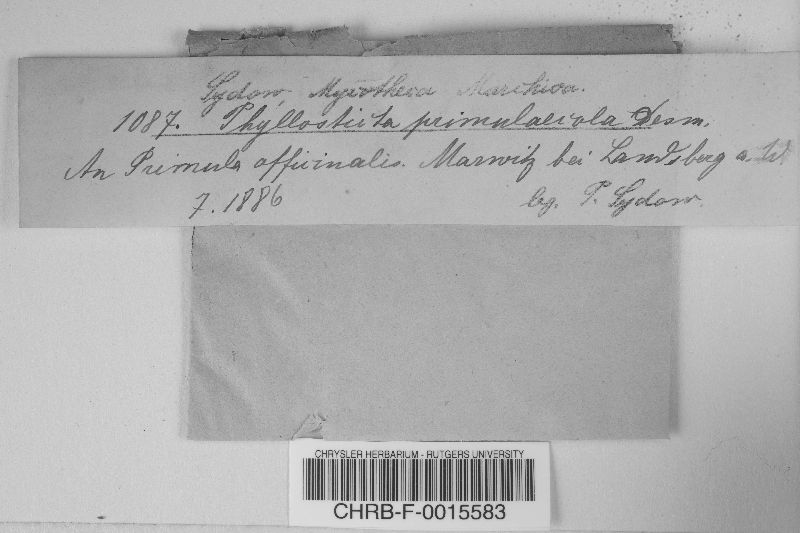 Sydow, Mycotheca Marchica.
1087. Phyllosticta primulaecola Desm.
An Primula officinalis. Marwitz bei Landsberg a. W
7. 1886 lg. P. Sydow.
CHRYSLER HERBARIUM - RUTGERS UNIVERSITY
CHRB-F-0015583